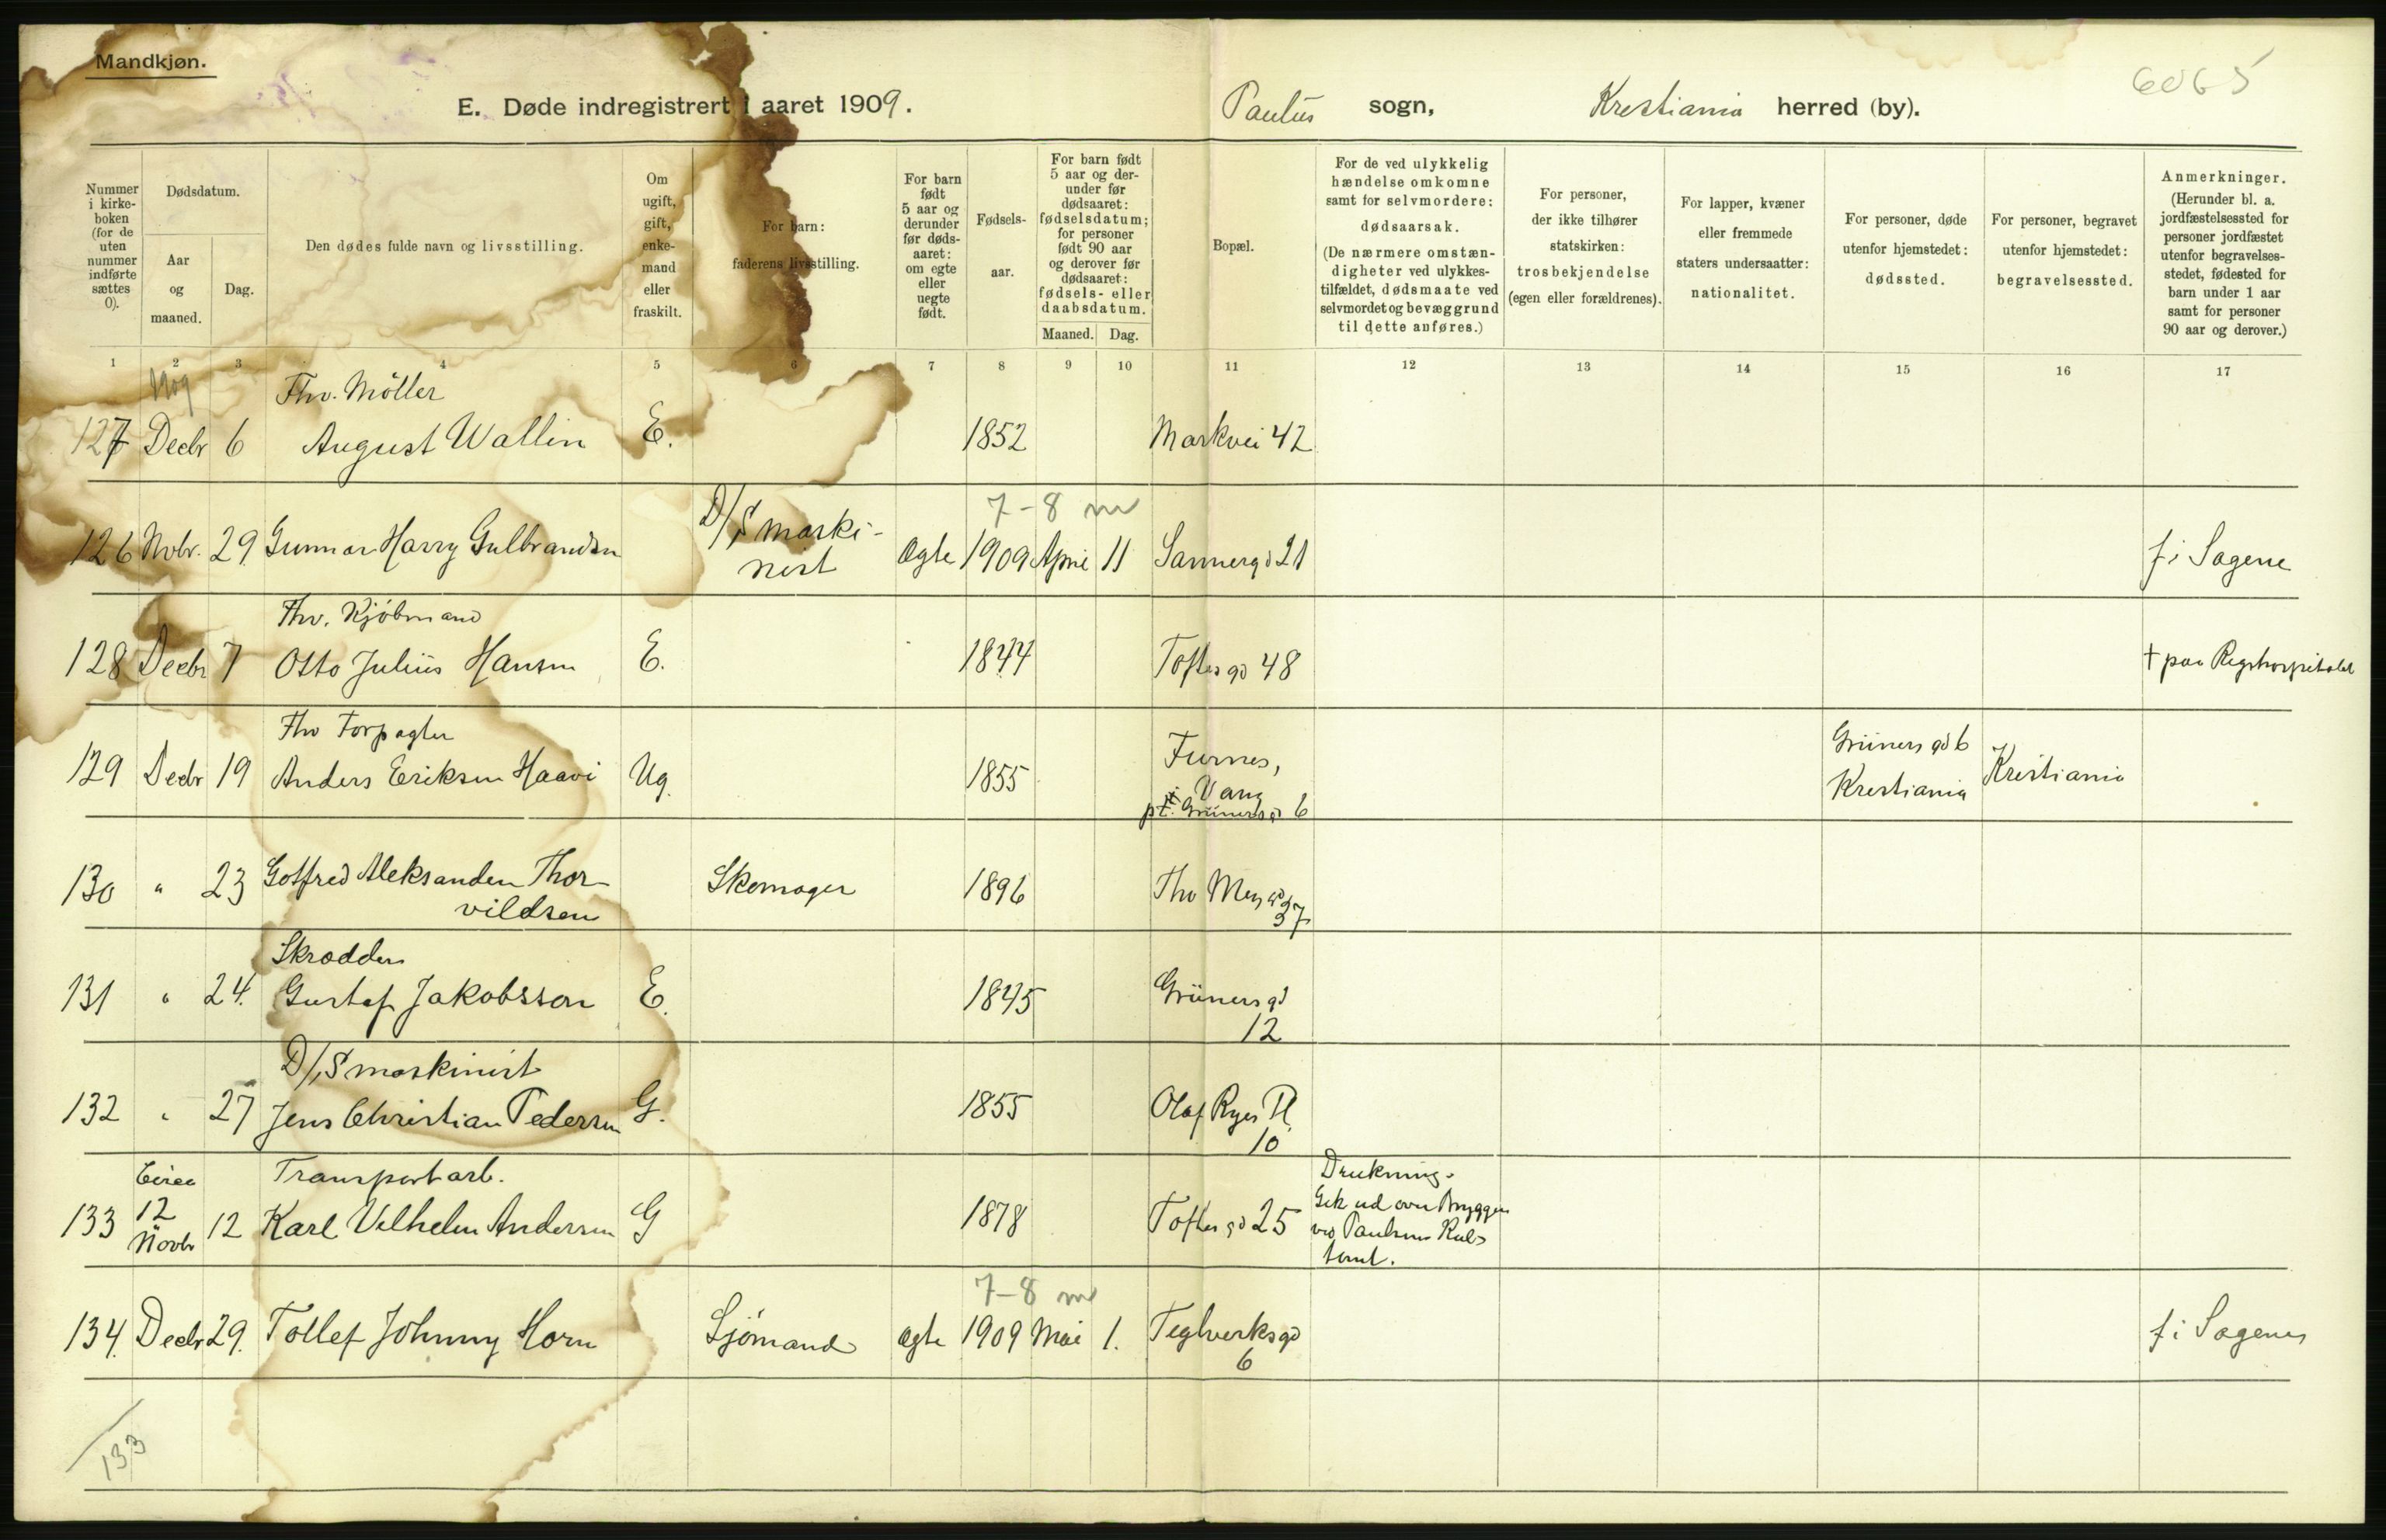 Mandkjøn.
6065
E. Døde indregistrert i aaret 1909.
Paulus sogn, Kristiania herred (by).
Nummer i kirke-boken (for de uten nummer indførte sættes 0).
Dødsdatum.
Aar og maaned.
Dag.
Den dødes fulde navn og livsstilling.
Om ugift, gift, enke-mand eller fraskilt.
For barn: faderens livsstilling.
For barn født 5 aar og derunder før døds-aaret: om egte eller uegte født.
Fødsels-aar.
For barn født 5 aar og der-under før dødsaaret: fødselsdatum; for personer født 90 aar og derover før dødsaaret: fødsels- eller daabsdatum.
Maaned. Dag.
Bopæl.
For de ved ulykkelig hændelse omkomne samt for selvmordere: dødsaarsak. (De nærmere omstæn-digheter ved ulykkes-tilfældet, dødsmaate ved selvmordet og bevæggrund til dette anføres.)
For personer, der ikke tilhører statskirken: trosbekjendelse (egen eller forældrenes).
For lapper, kvæner eller fremmede staters undersaatter: nationalitet.
For personer, døde utenfor hjemstedet: dødssted.
For personer, begravet utenfor hjemstedet: begravelsessted.
Anmerkninger. (Herunder bl. a. jordfæstelsessted for personer jordfæstet utenfor begravelses-stedet, fødested for barn under 1 aar samt for personer 90 aar og derover.)
1 2 3 4 5 6 7 8 9 10 11 12 13 14 15 16 17
1909
Fhv. Möller
127 Decbr 6 August Wallin E. 1852 Markvei 42
7-8 m
126 Novbr. 29. Gunnar Harry Gulbrandsen D/S maski-nist Ægte 1909 April 11 Sannergd 21 f i Sagene
Fhv. Kjöbmand
128 Decbr 7 Otto Julius Hansen E. 1844 Toftesgd 48 † paa Rigshospitalet
Fhv Forpagter
129 Decbr 19 Anders Eriksen Haavi Ug. 1855 Furnes, Vang
pt. Grünersgd 6
Grünersgd 6 Kristiania
Kristiania
130 " 23 Gotfred Aleksander Thor-
vildsen
Skomager 1896 Thv Meyersgd 37
Skrædder
131 " 24. Gustaf Jakobsson E. 1845 Grünersgd
12
D/S maskinist
132 " 27 Jens Christian Pedersen G. 1855 Olaf Ryes Pl.
10
Circa Transportarb.
133 12 Novbr 12 Karl Vilhelm Andersen G 1878 Toftesgd 25
Drukning.
Gik ud over Bryggen
ved Paulsens Kul-
tomt.
7-8 m
134. Decbr 29. Tollef Johnny Horn Sjömand ægte 1909 Mai 1. Teglverksgd
6
f i Sagenes
133